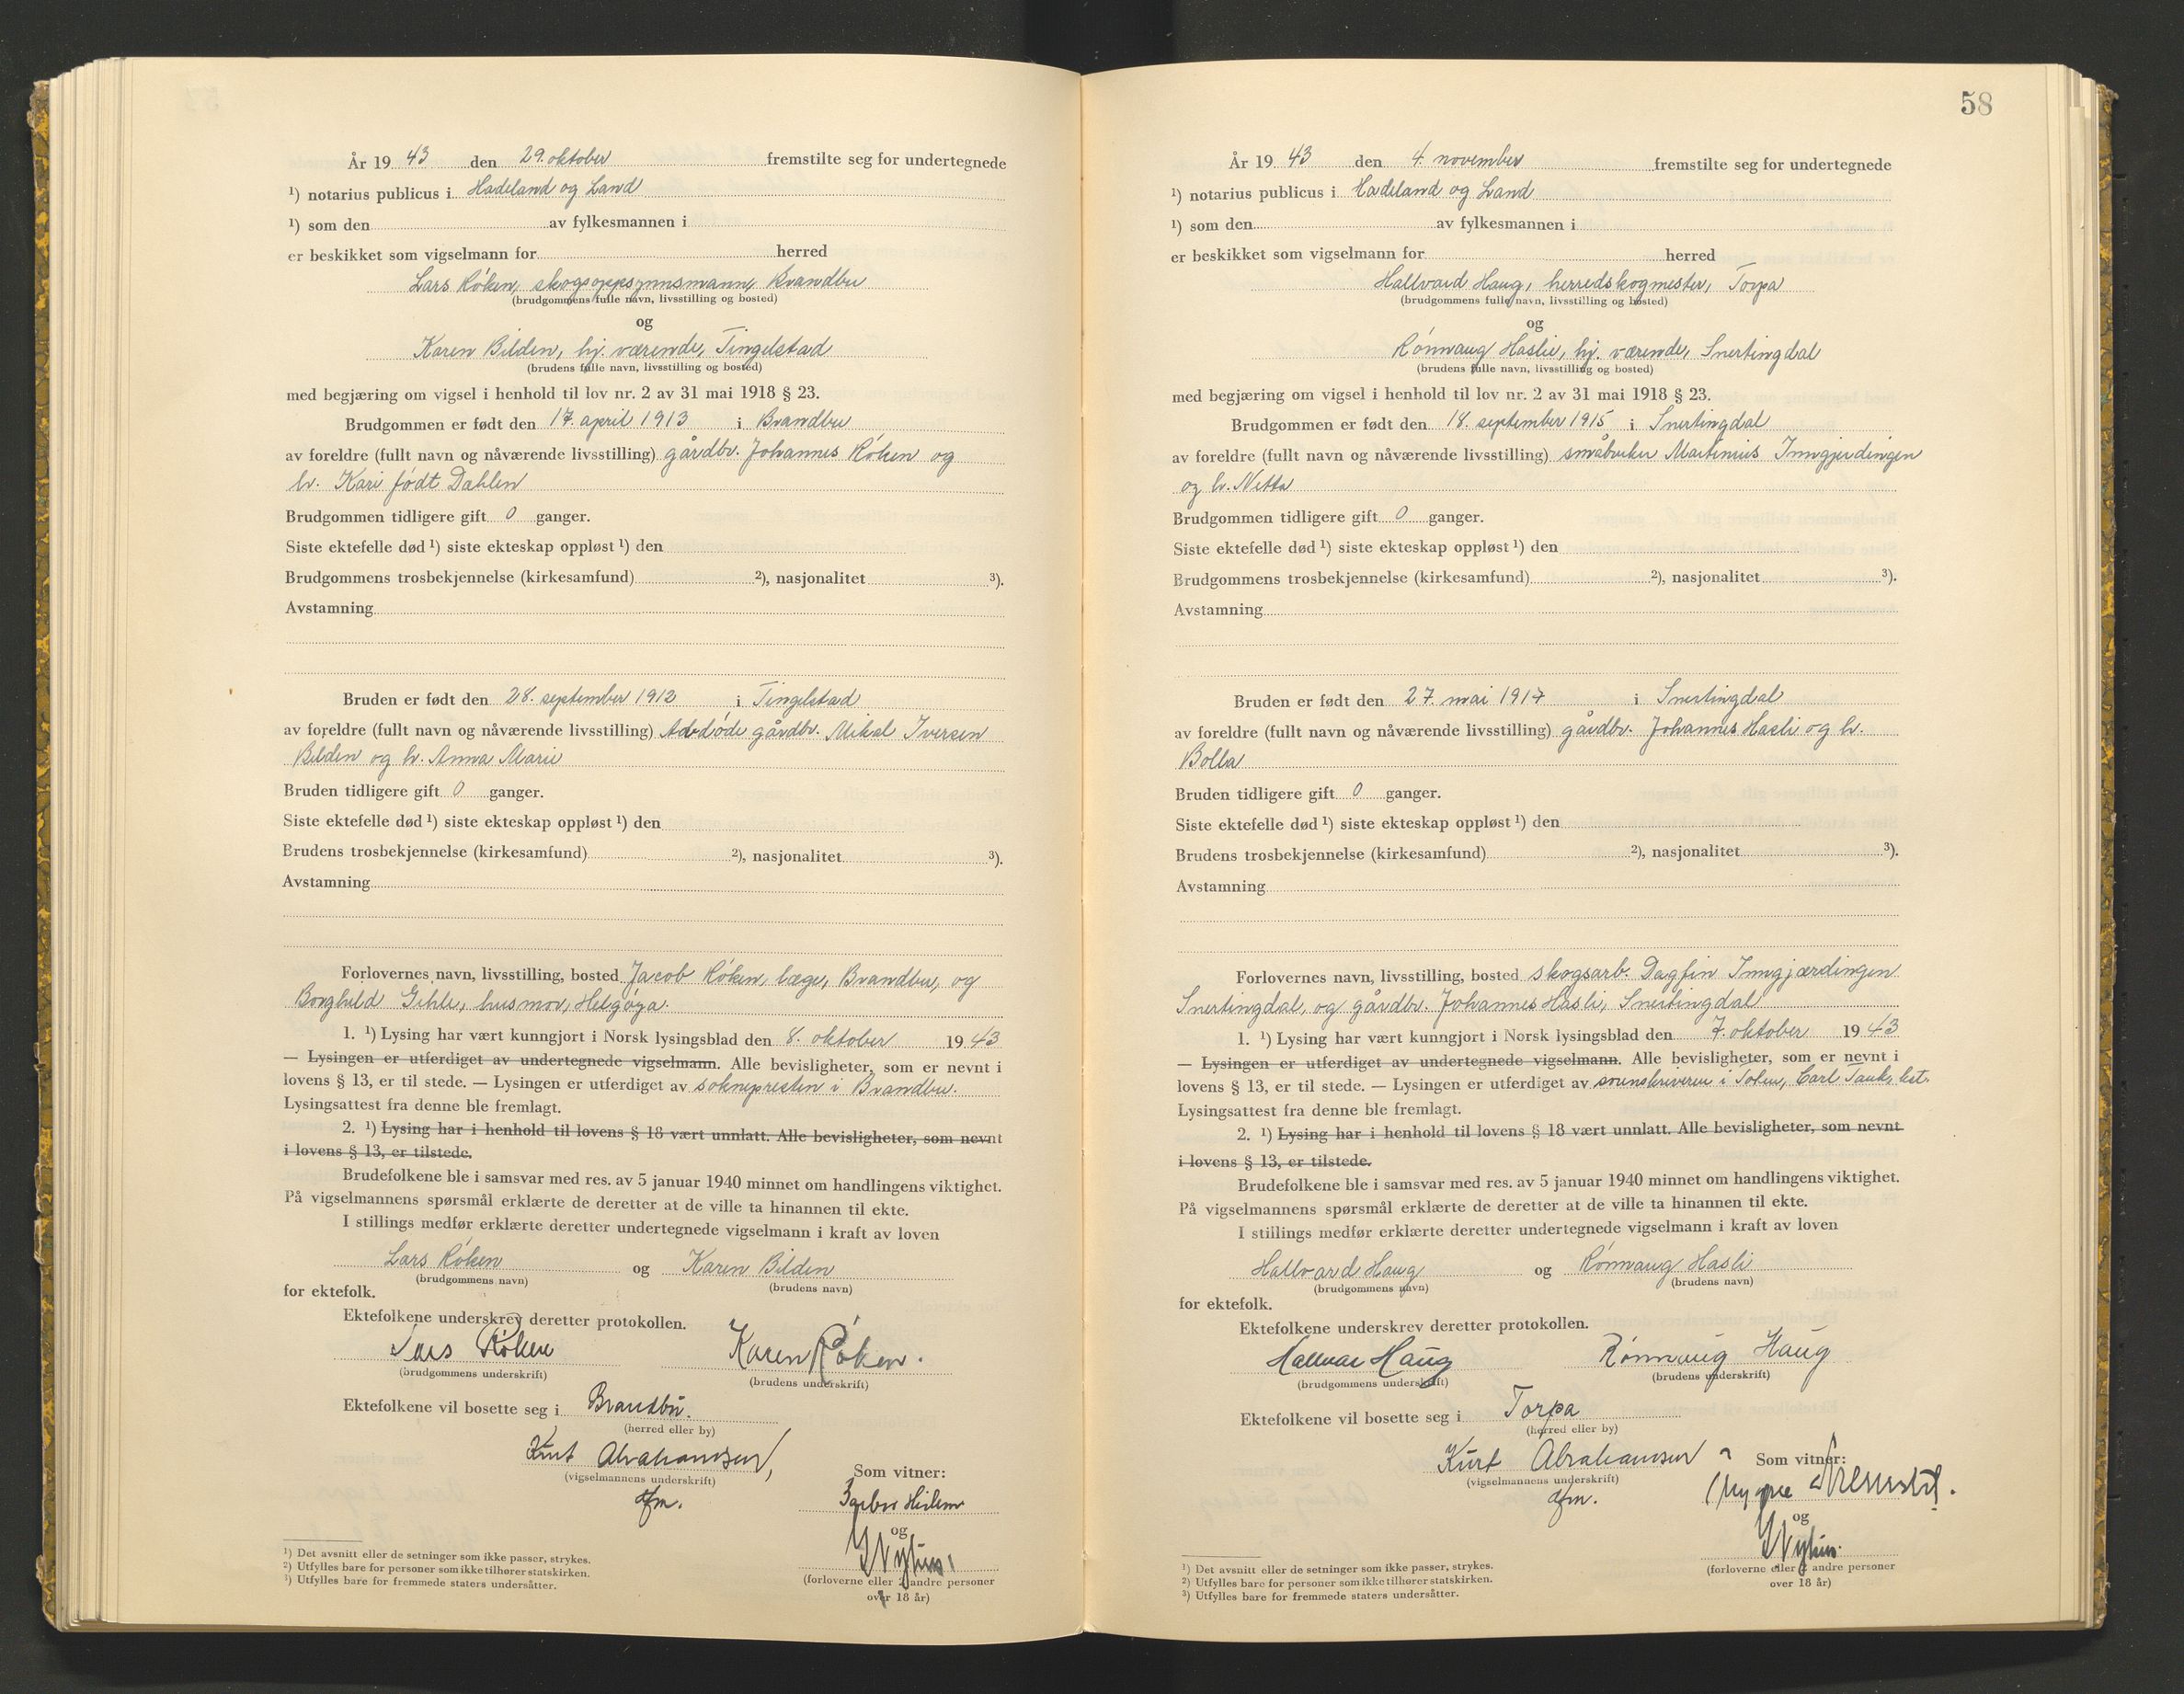 År 19 43 den 29. oktober fremstilte seg for undertegnede
¹) notarius publicus i Hadeland og Land
¹) som den av fylkesmannen i
er beskikket som vigselmann for herred
Lars Røken, skogsoppsynnsmann, Brandbu
(brudgommens fulle navn, livsstilling og bosted)
og
Karen Bilden, hj. værende, Tingelstad
(brudens fulle navn, livsstilling og bosted)
med begjæring om vigsel i henhold til lov nr. 2 av 31 mai 1918 § 23.
Brudgommen er født den 17. april 1913 i Brandbu
av foreldre (fullt navn og nåværende livsstilling) gårdbr. Johannes Røken og
h. Kari født Dahlen
Brudgommen tidligere gift 0 ganger.
Siste ektefelle død ¹) siste ekteskap oppløst ¹) den
Brudgommens trosbekjennelse (kirkesamfund) ²), nasjonalitet ³).
Avstamning
Bruden er født den 28. september 1912 i Tingelstad
av foreldre (fullt navn og nåværende livsstilling) Avdøde gårdbr. Mikal Iversen
Bilden og h. Anna Marie
Bruden tidligere gift 0 ganger.
Siste ektefelle død ¹) siste ekteskap oppløst ¹) den
Brudens trosbekjennelse (kirkesamfund) ²), nasjonalitet ³).
Avstamning
Forlovernes navn, livsstilling, bosted Jacob Røken, læge, Brandbu, og
Borghild Gihle, husmor, Helgøya.
1. ¹) Lysing har vært kunngjort i Norsk lysingsblad den 8. oktober 19 43
— Lysingen er utferdiget av undertegnede vigselmann. Alle bevisligheter, som er nevnt i
lovens § 13, er til stede. — Lysingen er utferdiget av soknepresten i Brandbu.
Lysingsattest fra denne ble fremlagt.
2. ¹) Lysing har i henhold til lovens § 18 vært unnlatt. Alle bevisligheter, som nevnt
i lovens § 13, er tilstede.
Brudefolkene ble i samsvar med res. av 5 januar 1940 minnet om handlingens viktighet.
På vigselmannens spørsmål erklærte de deretter at de ville ta hinannen til ekte.
I stillings medfør erklærte deretter undertegnede vigselmann i kraft av loven
Lars Røken og Karen Bilden
(brudgommens navn) (brudens navn)
for ektefolk.
Ektefolkene underskrev deretter protokollen.
Lars Røken Karen Røken.
(brudgommens underskrift) (brudens underskrift)
Ektefolkene vil bosette seg i Brandbu.
(herred eller by)
Kurt Abrahamsen,
(vigselmannens underskrift)
dfm.
Som vitner:
og
(forloverne eller 2 andre personer
over 18 år)
¹) Det avsnitt eller de setninger som ikke passer, strykes.
²) Utfylles bare for personer som ikke tilhører statskirken.
³) Utfylles bare for fremmede staters undersåtter.
58
År 19 43 den 4. november fremstilte seg for undertegnede
¹) notarius publicus i Hadeland og Land
¹) som den av fylkesmannen i
er beskikket som vigselmann for herred
Hallvard Haug, herredskogmester, Torpa
(brudgommens fulle navn, livsstilling og bosted)
og
Rønnaug Haslie, hj. værende, Snertingdal
(brudens fulle navn, livsstilling og bosted)
med begjæring om vigsel i henhold til lov nr. 2 av 31 mai 1918 § 23.
Brudgommen er født den 18. september 1915 i Snertingdal
av foreldre (fullt navn og nåværende livsstilling) småbruker Martinius Inngjerdingen
og h. Netta
Brudgommen tidligere gift 0 ganger.
Siste ektefelle død ¹) siste ekteskap oppløst ¹) den
Brudgommens trosbekjennelse (kirkesamfund) ²), nasjonalitet ³).
Avstamning
Bruden er født den 27. mai 1917 i Snertingdal
av foreldre (fullt navn og nåværende livsstilling) gårdbr. Johannes Hasli og h.
Bolla
Bruden tidligere gift 0 ganger.
Siste ektefelle død ¹) siste ekteskap oppløst ¹) den
Brudens trosbekjennelse (kirkesamfund) ²), nasjonalitet ³).
Avstamning
Forlovernes navn, livsstilling, bosted skogsarb. Dagfin Inngjærdingen
Snertingdal, og gårdbr. Johannes Hasli, Snertingdal
1. ¹) Lysing har vært kunngjort i Norsk lysingsblad den 7. oktober 19 43
— Lysingen er utferdiget av undertegnede vigselmann. Alle bevisligheter, som er nevnt i
lovens § 13, er til stede. — Lysingen er utferdiget av sorenskriveren i Toten, Carl
Lysingsattest fra denne ble fremlagt.
2. ¹) Lysing har i henhold til lovens § 18 vært unnlatt. Alle bevisligheter, som nevnt
i lovens § 13, er tilstede.
Brudefolkene ble i samsvar med res. av 5 januar 1940 minnet om handlingens viktighet.
På vigselmannens spørsmål erklærte de deretter at de ville ta hinannen til ekte.
I stillings medfør erklærte deretter undertegnede vigselmann i kraft av loven
Hallvard Haug og Rønnaug Hasli
(brudgommens navn) (brudens navn)
for ektefolk.
Ektefolkene underskrev deretter protokollen.
Hallvar Haug Rønnaug Haug
(brudgommens underskrift) (brudens underskrift)
Ektefolkene vil bosette seg i Torpa
(herred eller by)
Kurt Abrahamsen
(vigselmannens underskrift)
dfm.
Som vitner:
og
(forloverne eller 2 andre personer
over 18 år)
¹) Det avsnitt eller de setninger som ikke passer, strykes.
²) Utfylles bare for personer som ikke tilhører statskirken.
³) Utfylles bare for fremmede staters undersåtter.